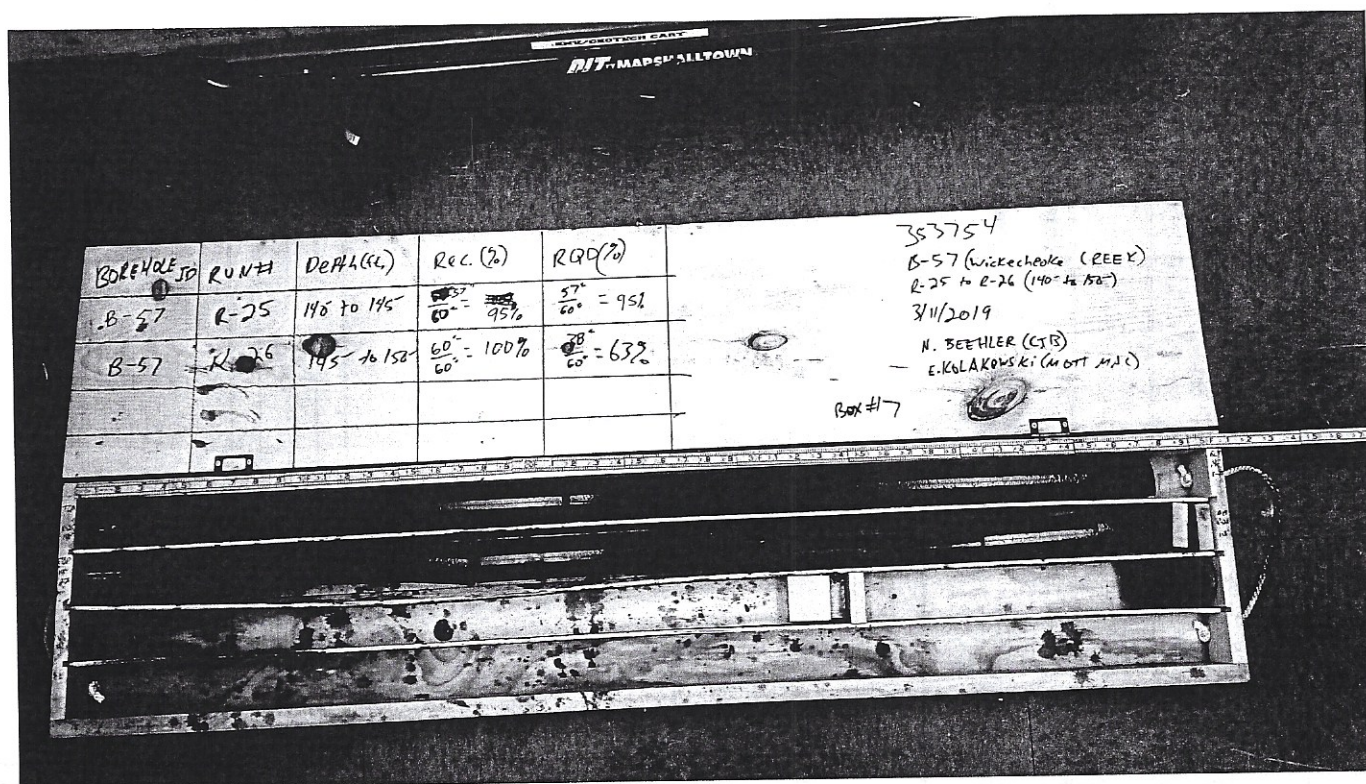 MARSHALLTOWN
BOREHOLE ID RUN# Depth(ft.) Rec.(%) RQD(%)
B-57 R-25 140 to 145 57"/60" = 95% 57"/60" = 95%
B-57 R-26 145 to 150 60"/60" = 100% 38"/60" = 63%
353754
B-57 (Wickecheoke CREEK)
R-25 to R-26 (140 to 150)
3/11/2019
N. BEEHLER (CJB)
E. KOLAKOWSKI (MOTT MAC)
Box #17